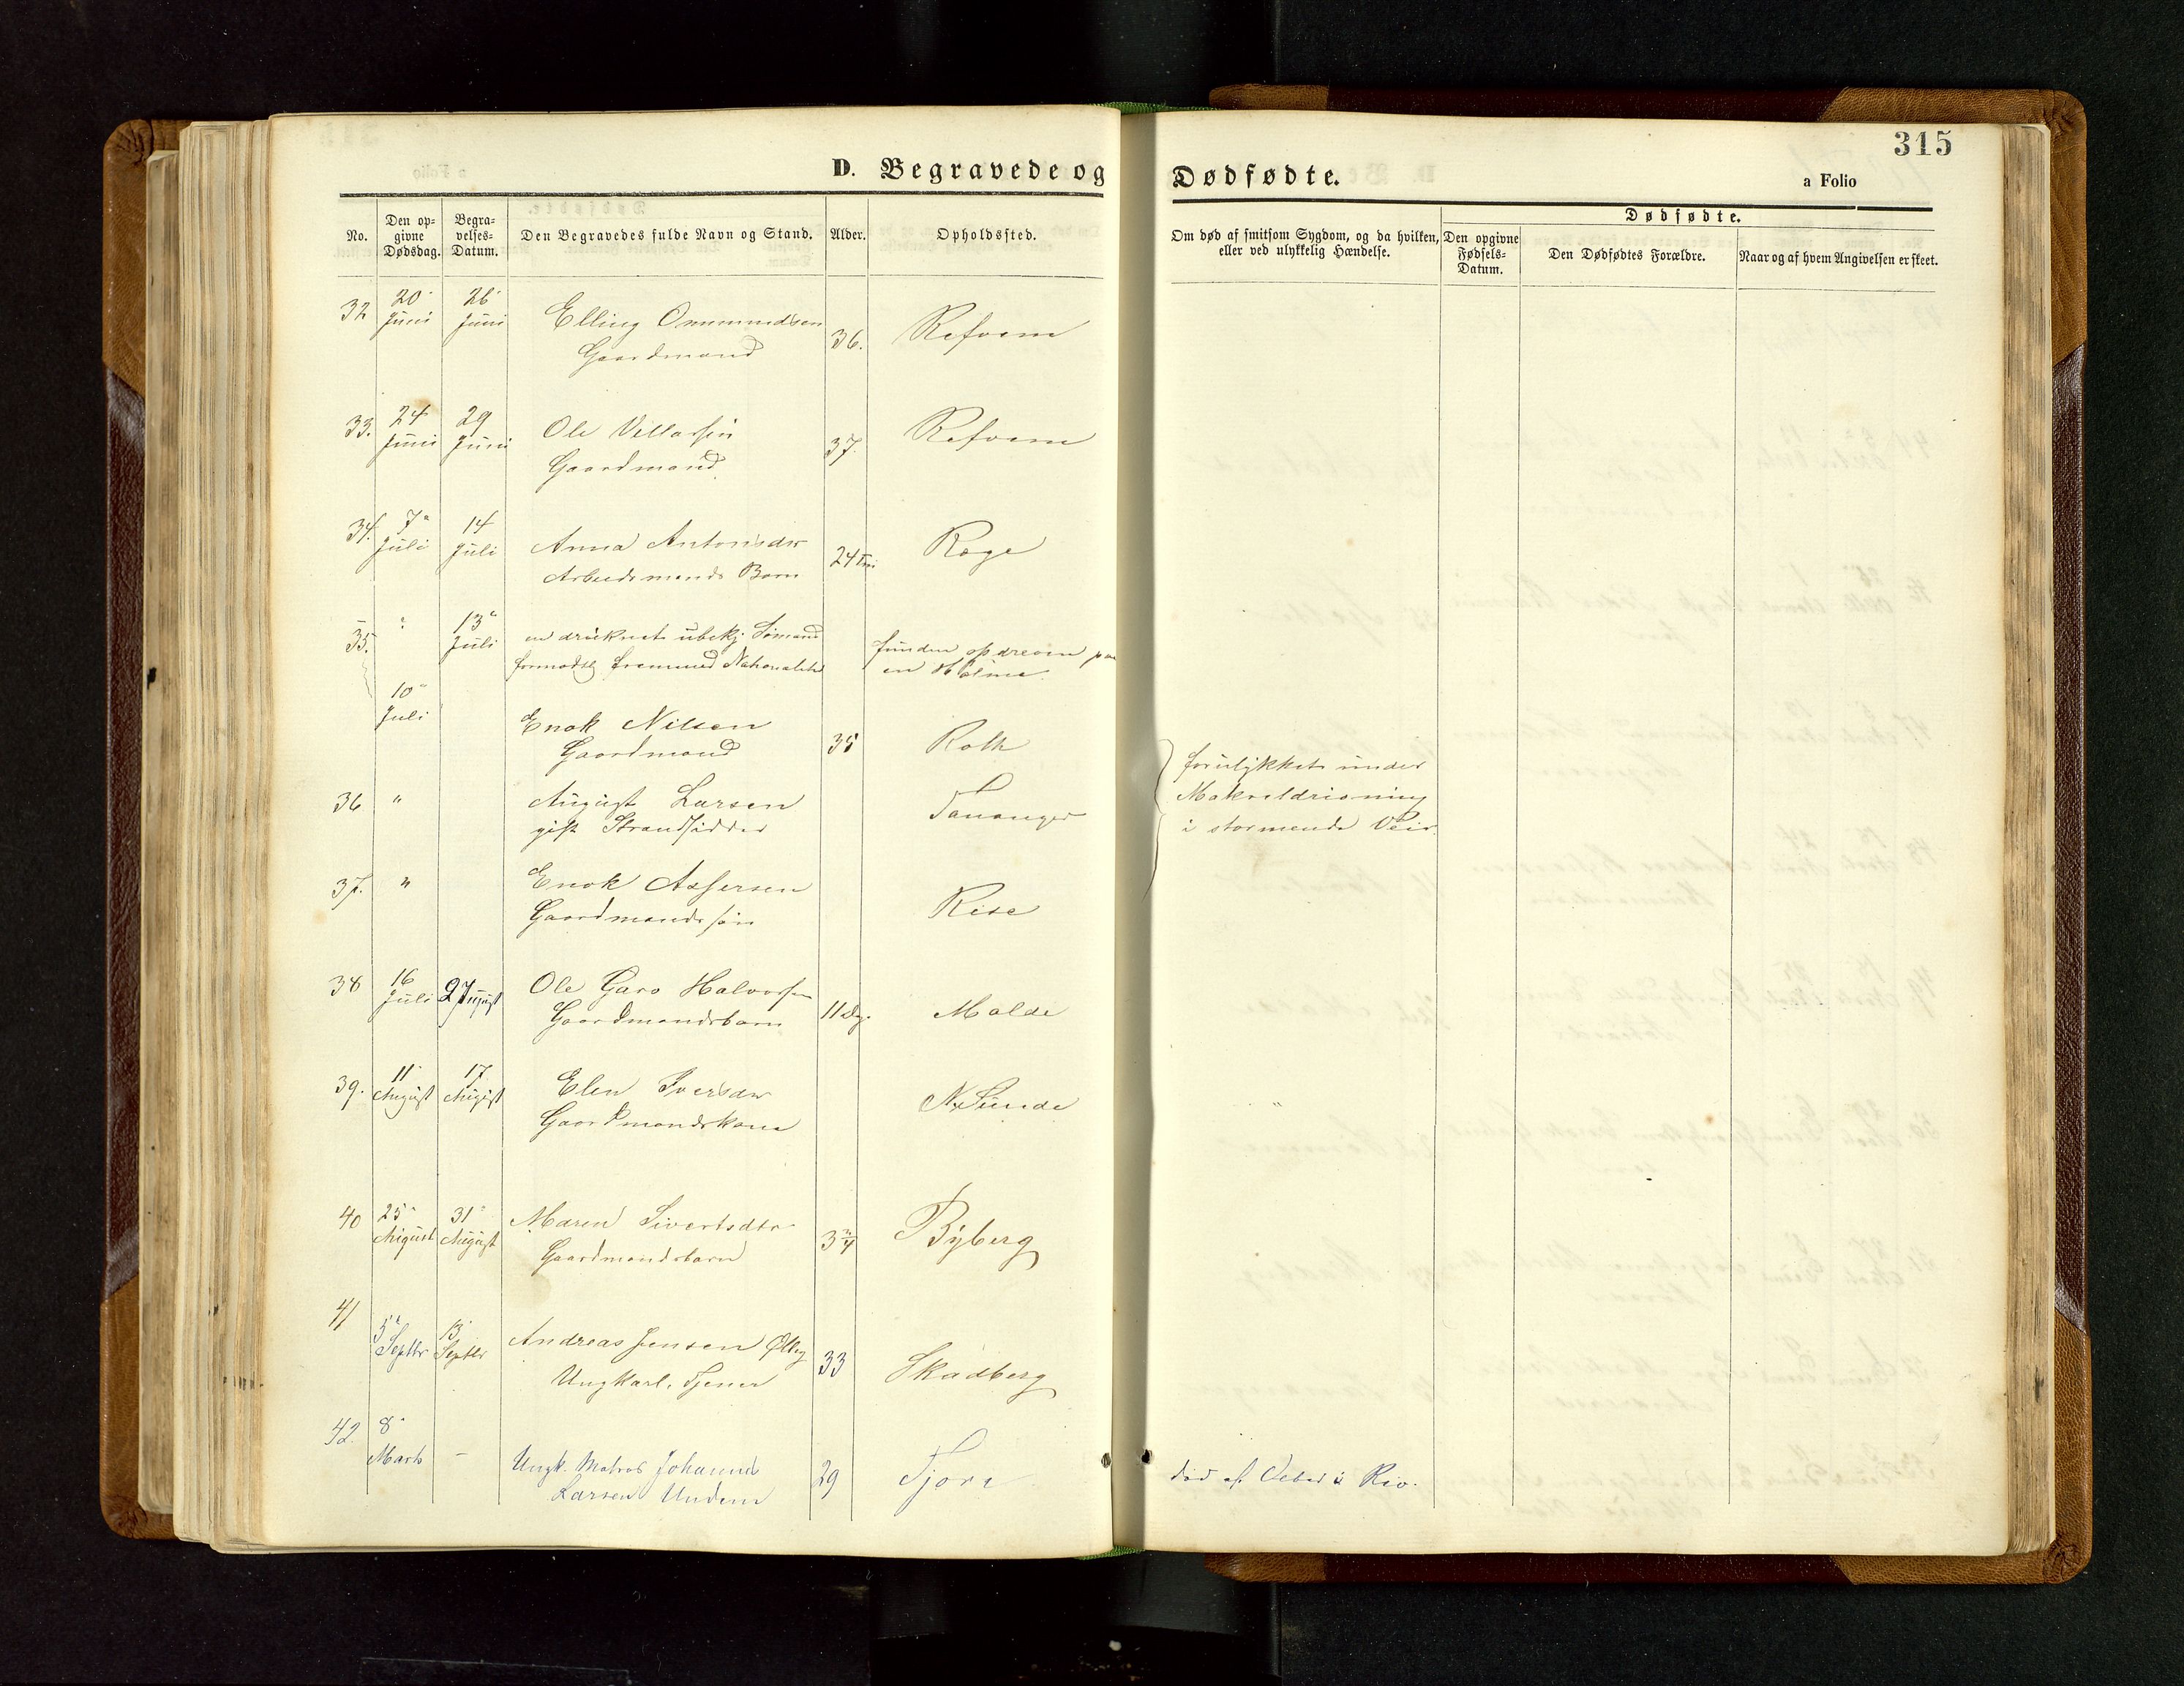 315
D. Begravede og Dødfødte.
a Folio
No.
Den op-
givne
Dødsdag.
Begra-
velses-
Datum.
Den Begravedes fulde Navn og Stand.
Alder.
Opholdssted.
Om død af smitsom Sygdom, og da hvilken,
eller ved ulykkelig Hændelse.
Dødfødte.
Den opgivne
Fødsels-
Datum.
Den Dødfødtes Forældre.
Naar og af hvem Angivelsen er skeet.
32 20 Juni 26 Juni Elling Ommundsen 36. Refsem
Gaardmand
33. 24 Juni 29 Juni Ole Villarsen 37. Refsem
Gaardmand
34. 7 Juli 14 Juli Anna Antonsdtr 24 Tim Rege
Arbeidsmands Barn
35. " 13 Juli en druknet ubekj Sømand funden opdreven paa
formodtlg fremmed Nationalitet en Holme.
10 Juli Enok Nilsen 35 Roth
Gaardmand
36 " August Larsen Tananger
gift Strandsidder
forulykket under
Makreldrivning
i stormende Veir.
37. " Enok Assersen Risa
Gaardmandssøn
38 16 Juli 27 August Ole Garo Halvorsen 11 Dg. Malde
Gaardmandsbarn
39. 11 August 17 August Elen Iversdtr N. Sunde
Gaardmandskone
40 25 August 31 August Maren Sivertsdtr 3 3/4 Byberg
Gaardmandsbarn
41 5 Septbr 13 Septbr Andreas Jensen 33 Skadberg
Ungkarl, Tjener
42. 8 Marts - Ungk. Matros Johannes 29 Tjora
Larsen
død af Feber i Rio.